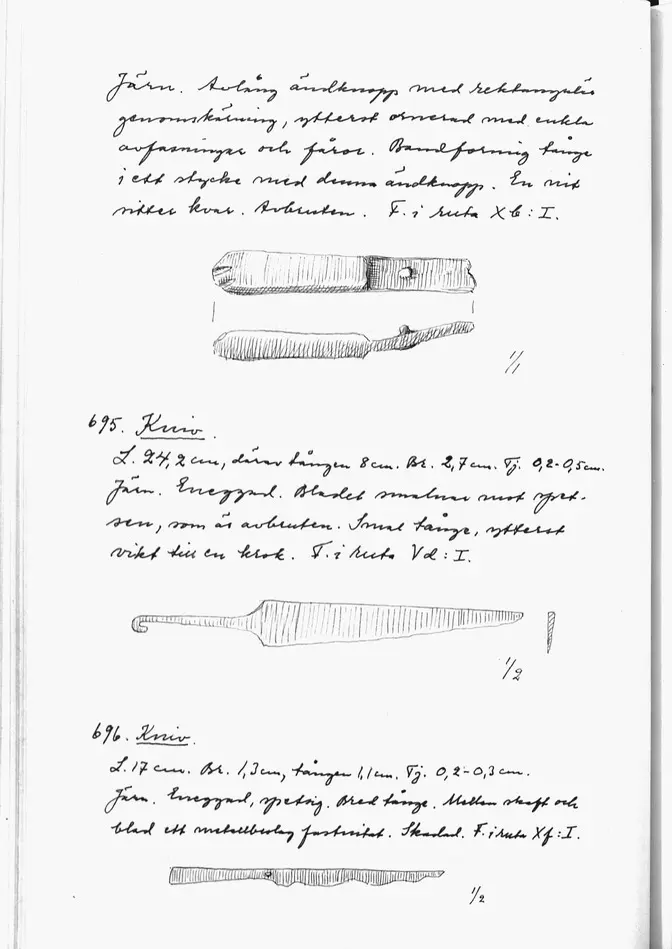 Järn. Avlång ändknopp med rektangulär
genomskärning, ytterst ornerad med enkla
avfasningar och fåror. Bandformig tånge
i ett stycke med denna ändknopp. En nit
sitter kvar. Avbruten. F. i ruta Xb : I.
1/1
695. Kniv.
L. 24,2 cm, därav tången 8 cm. Br. 2,7 cm. Tj. 0,2-0,5 cm.
Järn. Eneggad. Bladet smalnar mot spet-
sen, som är avbruten. Smal tånge, ytterst
vikt till en krok. F. i ruta Vd : I.
1/2
696. Kniv.
L. 17 cm. Br. 1,3 cm, tången 1,1 cm. Tj. 0,2-0,3 cm.
Järn. Eneggad, spetsig. Bred tånge. Mellan skaft och
blad ett metallbeslag fastnitat. Skadad. F. i ruta Xf : I.
1/2